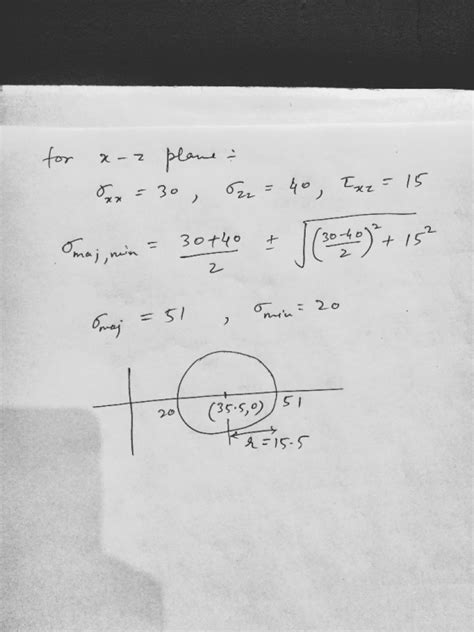 for x-z plane :-
σxx = 30 , σzz = 40 , τxz = 15
σmaj,min = (30+40)/2 ± √((30-40)/2)² + 15²
σmaj = 51 , σmin = 20
20 (35.5,0) 51
r = 15.5